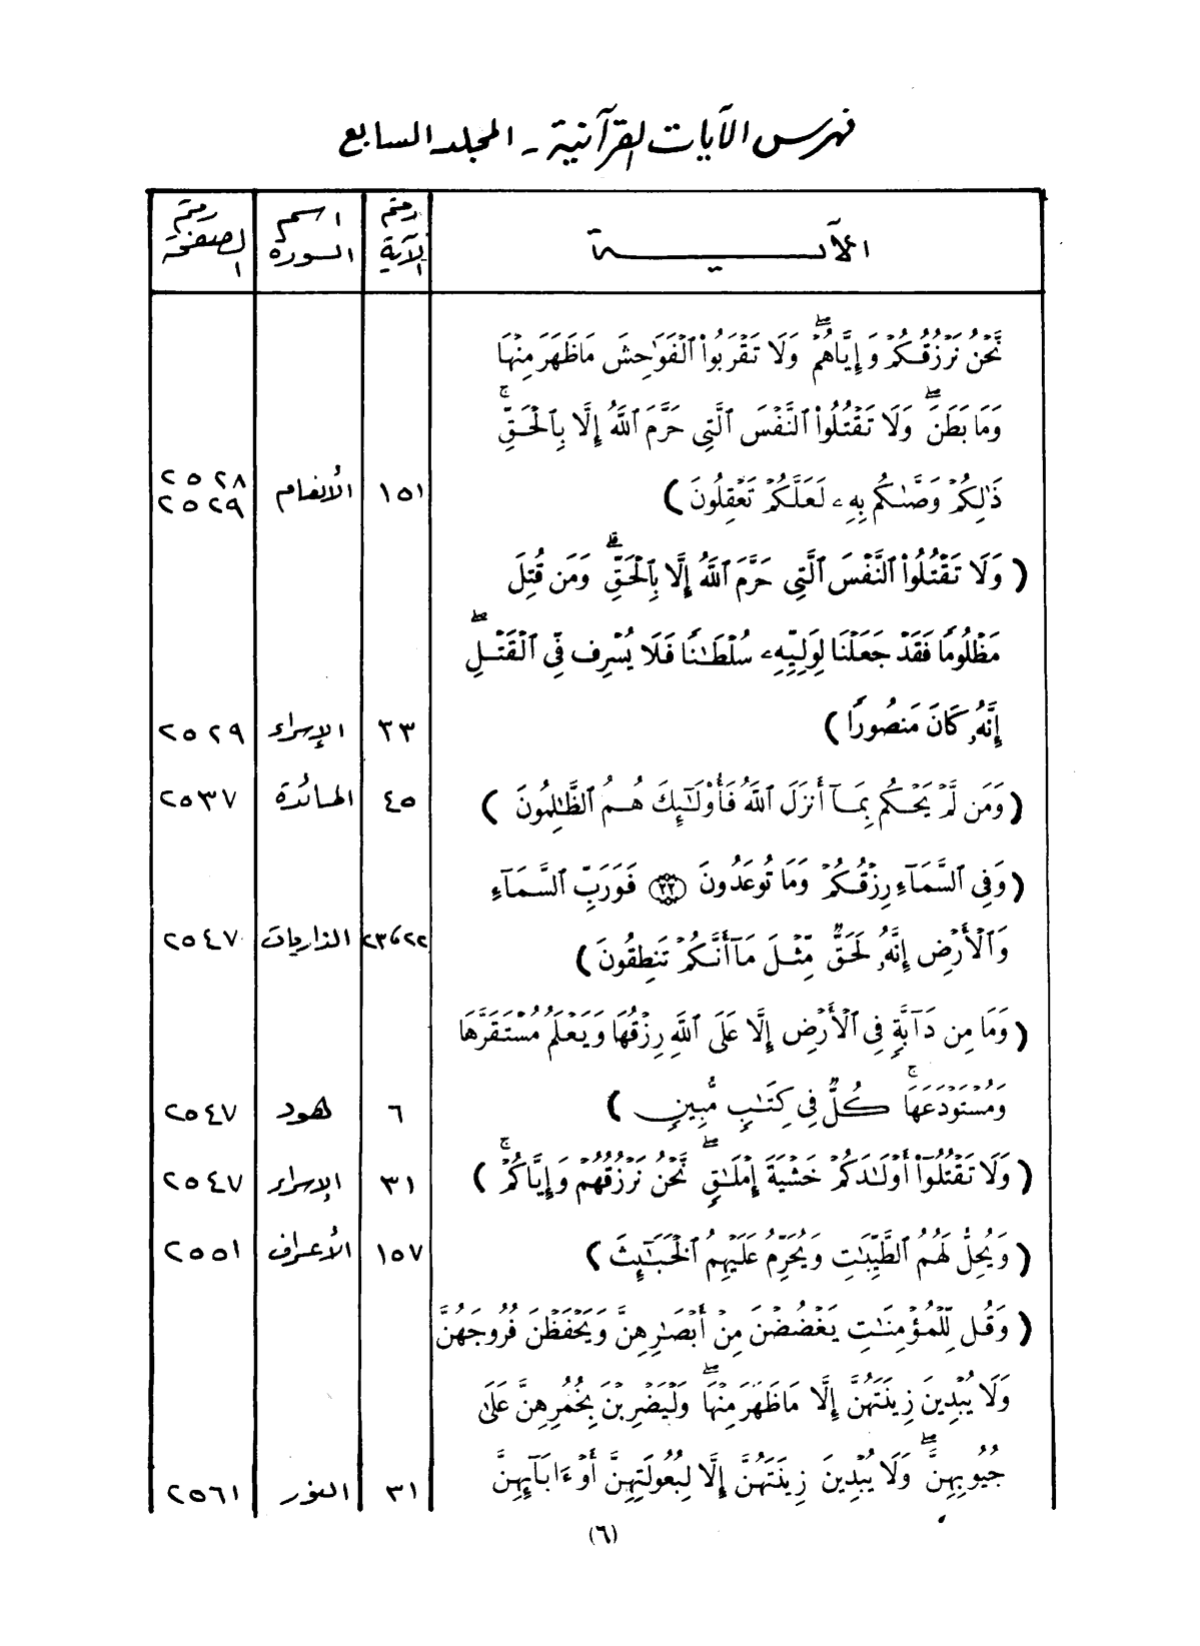 فهرس الآيات القرآنية - المجلد السابع
الآيـــة | رقم الآية | اسم السورة | رقم الصفحة
نَّحْنُ نَرْزُقُكُمْ وَإِيَّاهُمْ ۖ وَلَا تَقْرَبُوا۟ ٱلْفَوَٰحِشَ مَا ظَهَرَ مِنْهَا
وَمَا بَطَنَ ۖ وَلَا تَقْتُلُوا۟ ٱلنَّفْسَ ٱلَّتِى حَرَّمَ ٱللَّهُ إِلَّا بِٱلْحَقِّ ۚ
ذَٰلِكُمْ وَصَّىٰكُم بِهِۦ لَعَلَّكُمْ تَعْقِلُونَ ) | ١٥١ | الأنعام | ٢٥٢٨ ٢٥٢٩
( وَلَا تَقْتُلُوا۟ ٱلنَّفْسَ ٱلَّتِى حَرَّمَ ٱللَّهُ إِلَّا بِٱلْحَقِّ ۗ وَمَن قُتِلَ
مَظْلُومًا فَقَدْ جَعَلْنَا لِوَلِيِّهِۦ سُلْطَٰنًا فَلَا يُسْرِف فِّى ٱلْقَتْلِ ۖ
إِنَّهُۥ كَانَ مَنصُورًا ) | ٣٣ | الإسراء | ٢٥٢٩
( وَمَن لَّمْ يَحْكُم بِمَآ أَنزَلَ ٱللَّهُ فَأُو۟لَٰٓئِكَ هُمُ ٱلظَّٰلِمُونَ ) | ٤٥ | المائدة | ٢٥٣٧
( وَفِى ٱلسَّمَآءِ رِزْقُكُمْ وَمَا تُوعَدُونَ ﴿٢٢﴾ فَوَرَبِّ ٱلسَّمَآءِ
وَٱلْأَرْضِ إِنَّهُۥ لَحَقٌّ مِّثْلَ مَآ أَنَّكُمْ تَنطِقُونَ ) | ٢٢،٢٣ | الذاريات | ٢٥٤٧
( وَمَا مِن دَآبَّةٍ فِى ٱلْأَرْضِ إِلَّا عَلَى ٱللَّهِ رِزْقُهَا وَيَعْلَمُ مُسْتَقَرَّهَا
وَمُسْتَوْدَعَهَا ۚ كُلٌّ فِى كِتَٰبٍ مُّبِينٍ ) | ٦ | هود | ٢٥٤٧
( وَلَا تَقْتُلُوٓا۟ أَوْلَٰدَكُمْ خَشْيَةَ إِمْلَٰقٍ ۖ نَّحْنُ نَرْزُقُهُمْ وَإِيَّاكُمْ ۚ ) | ٣١ | الإسراء | ٢٥٤٧
( وَيُحِلُّ لَهُمُ ٱلطَّيِّبَٰتِ وَيُحَرِّمُ عَلَيْهِمُ ٱلْخَبَٰٓئِثَ ) | ١٥٧ | الأعراف | ٢٥٥١
( وَقُل لِّلْمُؤْمِنَٰتِ يَغْضُضْنَ مِنْ أَبْصَٰرِهِنَّ وَيَحْفَظْنَ فُرُوجَهُنَّ
وَلَا يُبْدِينَ زِينَتَهُنَّ إِلَّا مَا ظَهَرَ مِنْهَا ۖ وَلْيَضْرِبْنَ بِخُمُرِهِنَّ عَلَىٰ
جُيُوبِهِنَّ ۖ وَلَا يُبْدِينَ زِينَتَهُنَّ إِلَّا لِبُعُولَتِهِنَّ أَوْ ءَابَآئِهِنَّ | ٣١ | النور | ٢٥٦١
(٦)